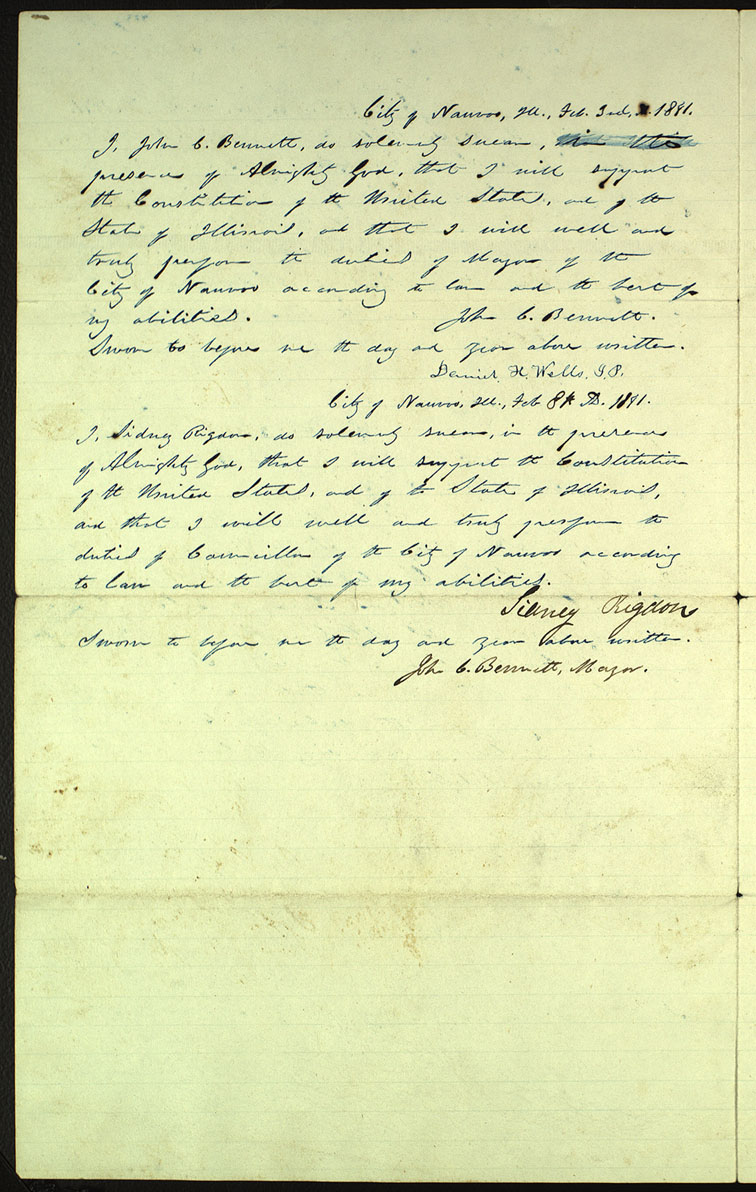 City of Nauvoo, Ill., Feb. 3rd, 1841.
I, John C. Bennett, do solemnly swear, in the
presence of Almighty God, that I will support
the Constitution of the United States, and of the
State of Illinois, and that I will well and
truly perform the duties of Mayor of the
City of Nauvoo according to law and the best of
my abilities. John C. Bennett.
Sworn to before me the day and year above written.
Daniel H. Wells. J.P.
City of Nauvoo, Ill., Feb 8th 1841.
I, Sidney Rigdon, do solemnly swear, in the presence
of Almighty God, that I will support the Constitution
of the United States, and of the State of Illinois,
and that I will well and truly perform the
duties of Councillor of the City of Nauvoo according
to law and the best of my abilities.
Sidney Rigdon
Sworn to before me the day and year above written.
John C. Bennett, Mayor.